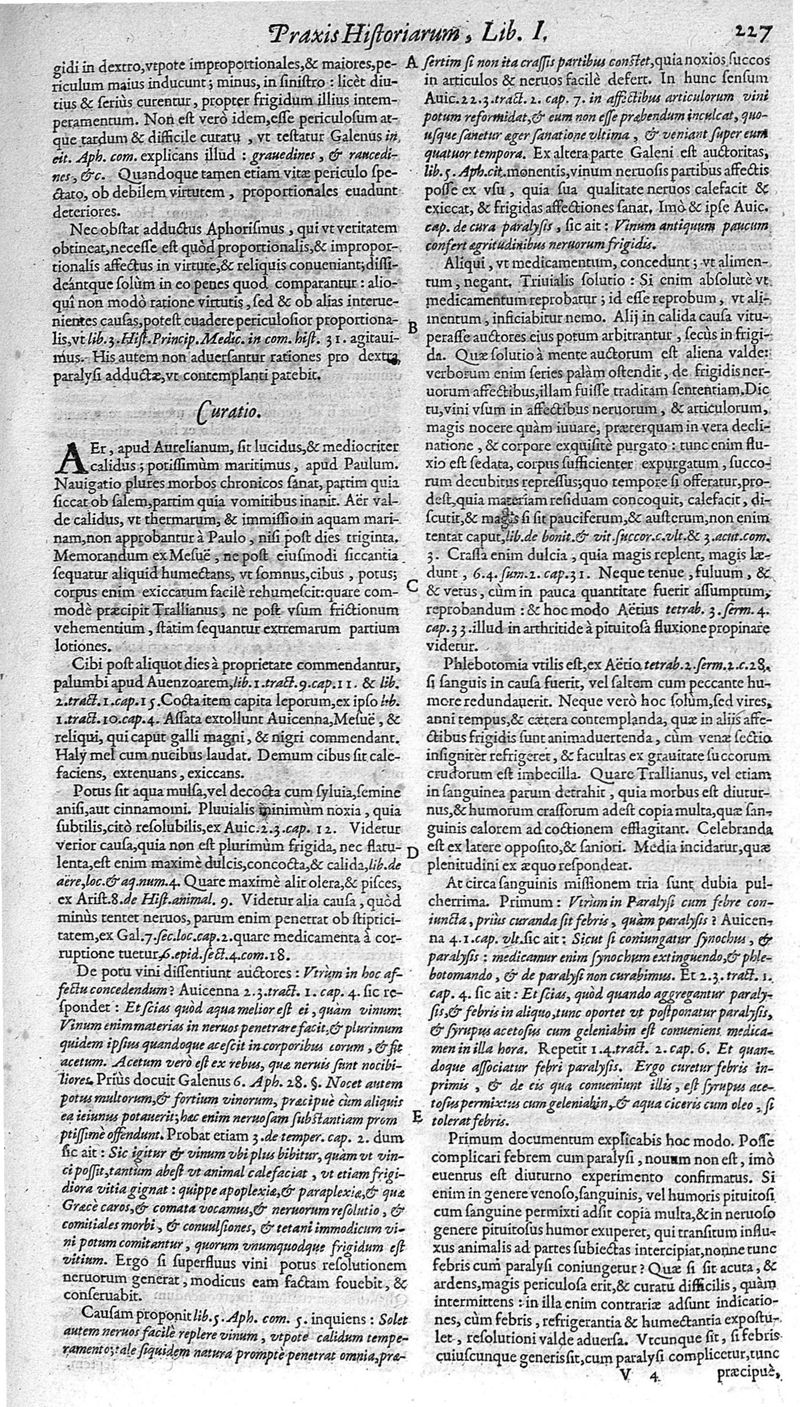 Praxis Historiarum, Lib. I. 227
gidi in dextro, vtpote improportionales, & maiores, pe-
riculum maius inducunt; minus, in sinistro: licèt diu-
tius & seriùs curentur, propter frigidum illius intem-
peramentum. Non est verò idem, esse periculosum at-
que tardum & difficile curatu, vt testatur Galenus in
cit. Aph. com. explicans illud: grauedines, & raucedi-
nes, &c. Quandoque tamen etiam vitæ periculo spe-
ctato, ob debilem virtutem, proportionales euadunt
deteriores.
Nec obstat adductus Aphorismus, qui vt veritatem
obtineat, necesse est quòd proportionalis, & impropor-
tionalis affectus in virtute, & reliquis conueniant; dissi-
deántque solùm in eo penes quod comparantur: alio-
quî non modò ratione virtutis, sed & ob alias interue-
nientes causas, potest euadere periculosior proportiona-
lis, vt lib. 3. Hist. Princip. Medic. in com. hist. 31. agitaui-
mus. His autem non aduersantur rationes pro dextra
paralysi adductæ, vt contemplanti patebit.
Curatio.
AEr, apud Aurelianum, sit lucidus, & mediocriter
calidus; potissimùm maritimus, apud Paulum.
Nauigatio plures morbos chronicos sanat, partim quia
siccat ob salem, partim quia vomitibus inanit. Aër val-
de calidus, vt thermarum, & immissio in aquam mari-
nam, non approbantur à Paulo, nisi post dies triginta.
Memorandum ex Mesuë, ne post eiusmodi siccantia
sequatur aliquid humectans, vt somnus, cibus, potus;
corpus enim exiccatum facilè rehumescit: quare com-
modè præcipit Trallianus, ne post vsum frictionum
vehementium, stàtim sequantur extremarum partium
lotiones.
Cibi post aliquot dies à proprietate commendantur,
palumbi apud Auenzoarem, lib. 1. tract. 9. cap. 11. & lib.
2. tract. 1. cap. 15. Cocta item capita leporum, ex ipso lib.
1. tract. 10. cap. 4. Assata extollunt Auicenna, Mesuë, &
reliqui, qui caput galli magni, & nigri commendant.
Haly mel cum nucibus laudat. Demum cibus sit cale-
faciens, extenuans, exiccans.
Potus sit aqua mulsa, vel decocta cum syluia, semine
anisi, aut cinnamomi. Pluuialis minimùm noxia, quia
subtilis, citò resolubilis, ex Auic. 2. 3. cap. 12. Videtur
verior causa, quia non est plurimùm frigida, nec flatu-
lenta, est enim maximè dulcis, concocta, & calida, lib. de
aëre, loc. & aq. num. 4. Quare maximè alit olera, & pisces,
ex Arist. 8. de Hist. animal. 9. Videtur alia causa, quòd
minùs tentet neruos, parum enim penetrat ob stiptici-
tatem, ex Gal. 7. sec. loc. cap. 2. quare medicamenta à cor-
ruptione tuetur, 6. epid. sect. 4. com. 18.
De potu vini dissentiunt auctores: Vtrùm in hoc af-
fectu concedendum? Auicenna 2. 3. tract. 1. cap. 4. sic re-
spondet: Et scias quòd aqua melior est ei, quàm vinum:
Vinum enim materias in neruos penetrare facit, & plurimum
quidem ipsius quandoque acescit in corporibus eorum, & fit
acetum. Acetum verò est ex rebus, quæ neruis sunt nocibi-
liores. Priùs docuit Galenus 6. Aph. 28. §. Nocet autem
potus multorum, & fortium vinorum, præcipuè cùm aliquis
ea ieiunus potauerit; hæc enim neruosam substantiam prom
ptissimè offendunt. Probat etiam 3. de temper. cap. 2. dum
sic ait: Sic igitur & vinum vbi plus bibitur, quàm vt vin-
ci possit, tantum abest vt animal calefaciat, vt etiam frigi-
diora vitia gignat: quippe apoplexiæ, & paraplexiæ, & quæ
Græcè caros, & comata vocamus, & neruorum resolutio, &
comitiales morbi, & conuulsiones, & tetani immodicum vi-
ni potum comitantur, quorum vnumquodque frigidum est
vitium. Ergo si superfluus vini potus resolutionem
neruorum generat, modicus eam factam fouebit, &
conseruabit.
Causam proponit lib. 5. Aph. com. 5. inquiens: Solet
autem neruos facilè replere vinum, vtpote calidum tempe-
ramento; tale siquidem natura promptè penetrat omnia, præ-
A sertim si non ita crassis partibus constet, quia noxios succos
in articulos & neruos facilè defert. In hunc sensum
Auic. 22. 3. tract. 2. cap. 7. in affectibus articulorum vini
potum reformidat, & eum non esse præbendum inculcat, quo-
usque sanetur æger sanatione vltima, & veniant super eum
quatuor tempora. Ex altera parte Galeni est auctoritas,
lib. 5. Aph. cit. monentis, vinum neruosis partibus affectis
posse ex vsu, quia sua qualitate neruos calefacit &
exiccat, & frigidas affectiones sanat. Imò & ipse Auic.
cap. de cura paralysis, sic ait: Vinum antiquum paucum
confert ægritudinibus neruorum frigidis.
Aliqui, vt medicamentum, concedunt; vt alimen-
tum, negant. Triuialis solutio: Si enim absolutè vt
medicamentum reprobatur; id esse reprobum, vt ali-
B mentum, inficiabitur nemo. Alij in calida causa vitu-
perasse auctores eius potum arbitrantur, secùs in frigi-
da. Quæ solutio à mente auctorum est aliena valde:
verborum enim series palàm ostendit, de frigidis ner-
uorum affectibus, illam fuisse traditam sententiam. Dic
tu, vini vsum in affectibus neruorum, & articulorum,
magis nocere quàm iuuare, præterquam in vera decli-
natione, & corpore exquisitè purgato: tunc enim flu-
xio est sedata, corpus sufficienter expurgatum, succo-
rum decubitus repressus; quo tempore si offeratur, pro-
dest, quia materiam residuam concoquit, calefacit, di-
scutit, & magis si sit pauciferum, & austerum, non enim
tentat caput, lib. de bonit. & vit. succor. c. vlt. & 3. acut. com.
3. Crassa enim dulcia, quia magis replent, magis læ-
dunt, 6. 4. sum. 2. cap. 31. Neque tenue, fuluum, &
C & vetus, cùm in pauca quantitate fuerit assumptum,
reprobandum: & hoc modo Aëtius tetrab. 3. serm. 4.
cap. 33. illud in arthritide à pituitosa fluxione propinare
videtur.
Phlebotomia vtilis est, ex Aëtio tetrab. 2. serm. 2. c. 28.
si sanguis in causa fuerit, vel saltem cum peccante hu-
more redundauerit. Neque verò hoc solùm, sed vires,
anni tempus, & cætera contemplanda, quæ in alijs affe-
ctibus frigidis sunt animaduertenda, cùm venæ sectio
insigniter refrigeret, & facultas ex grauitate succorum
crudorum est imbecilla. Quare Trallianus, vel etiam
in sanguinea parum detrahit, quia morbus est diutur-
nus, & humorum crassorum adest copia multa, quæ san-
guinis calorem ad coctionem efflagitant. Celebranda
D est ex latere opposito, & saniori. Media incidatur, quæ
plenitudini ex æquo respondeat.
At circa sanguinis missionem tria sunt dubia pul-
cherrima. Primum: Vtrùm in Paralysi cum febre con-
iuncta, priùs curanda sit febris, quàm paralysis? Auicen-
na 4. 1. cap. vlt. sic ait: Sicut si coniungatur synochus, &
paralysis: medicamur enim synochum extinguendo, & phle-
botomando, & de paralysi non curabimus. Et 2. 3. tract. 1.
cap. 4. sic ait: Et scias, quòd quando aggregantur paraly-
sis, & febris in aliquo, tunc oportet vt postponatur paralysis,
& syrupus acetosus cum geleniabin est conueniens medica-
men in illa hora. Repetit 1. 4. tract. 2. cap. 6. Et quan-
doque associatur febri paralysis. Ergo curetur febris in-
primis, & de eis quæ conueniunt illis, est syrupus ace-
tosus permixtus cum geleniabin, & aqua ciceris cum oleo, si
E tolerat febris.
Primum documentum explicabis hoc modo. Posse
complicari febrem cum paralysi, nouum non est, imò
euentus est diuturno experimento confirmatus. Si
enim in genere venoso, sanguinis, vel humoris pituitosi
cum sanguine permixti adsit copia multa, & in neruoso
genere pituitosus humor exuperet, qui transitum influ-
xus animalis ad partes subiectas intercipiat, nonne tunc
febris cum paralysi coniungetur? Quæ si sit acuta, &
ardens, magis periculosa erit, & curatu difficilis, quàm
intermittens: in illa enim contrariæ adsunt indicatio-
nes, cùm febris, refrigerantia & humectantia expostu-
let, resolutioni valde aduersa. Vtcunque sit, si febris
cuiuscunque generis sit, cum paralysi complicetur, tunc
V 4 præcipuè,